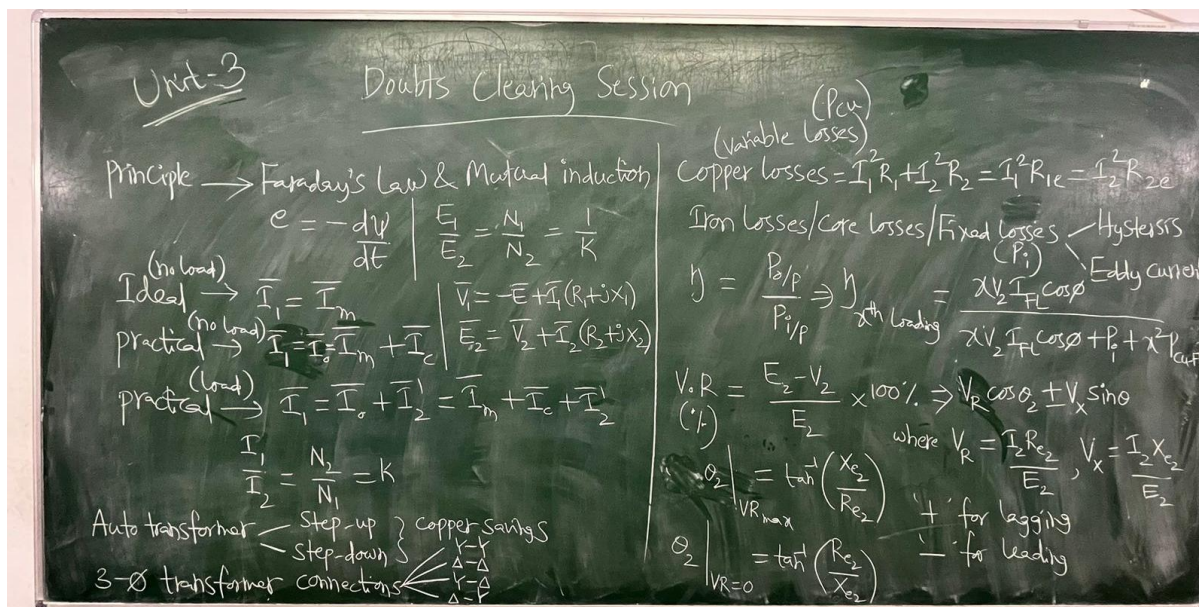 Unit-3
Doubts Clearing Session
Principle → Faraday's Law & Mutual induction
e = -dψ/dt | E₁/E₂ = N₁/N₂ = 1/K
Ideal (no load) → I̅₁ = I̅m
practical (no load) → I̅₁ = I̅₀ = I̅m + I̅c
V̅₁ = -E̅ + I̅₁(R₁+jX₁)
E̅₂ = V̅₂ + I̅₂(R₂+jX₂)
practical (load) → I̅₁ = I̅₀ + I̅₂' = I̅m + I̅c + I̅₂'
I₁/I₂ = N₂/N₁ = K
Auto transformer Step-up
step-down } copper savings
3-Ø transformer connections Y-Y
Δ-Δ
Y-Δ
Δ-Y
(Pcu)
(variable losses)
Copper losses = I₁²R₁ + I₂²R₂ = I₁²R₁e = I₂²R₂e
Iron losses/core losses/Fixed losses (Pi) Hystersis
Eddy current
η = Po/p / Pi/p ⇒ η xth loading = xV₂I_FL cosø / xV₂I_FL cosø + Pi + x²Pcu
V.R (%) = E₂-V₂/E₂ × 100% ⇒ V_R cosθ₂ ± Vx sinθ
where V_R = I₂Re₂/E₂, Vx = I₂Xe₂/E₂
θ₂|VRmax = tan⁻¹(Xe₂/Re₂)
'+' for lagging
'-' for leading
θ₂|VR=0 = tan⁻¹(Re₂/Xe₂)